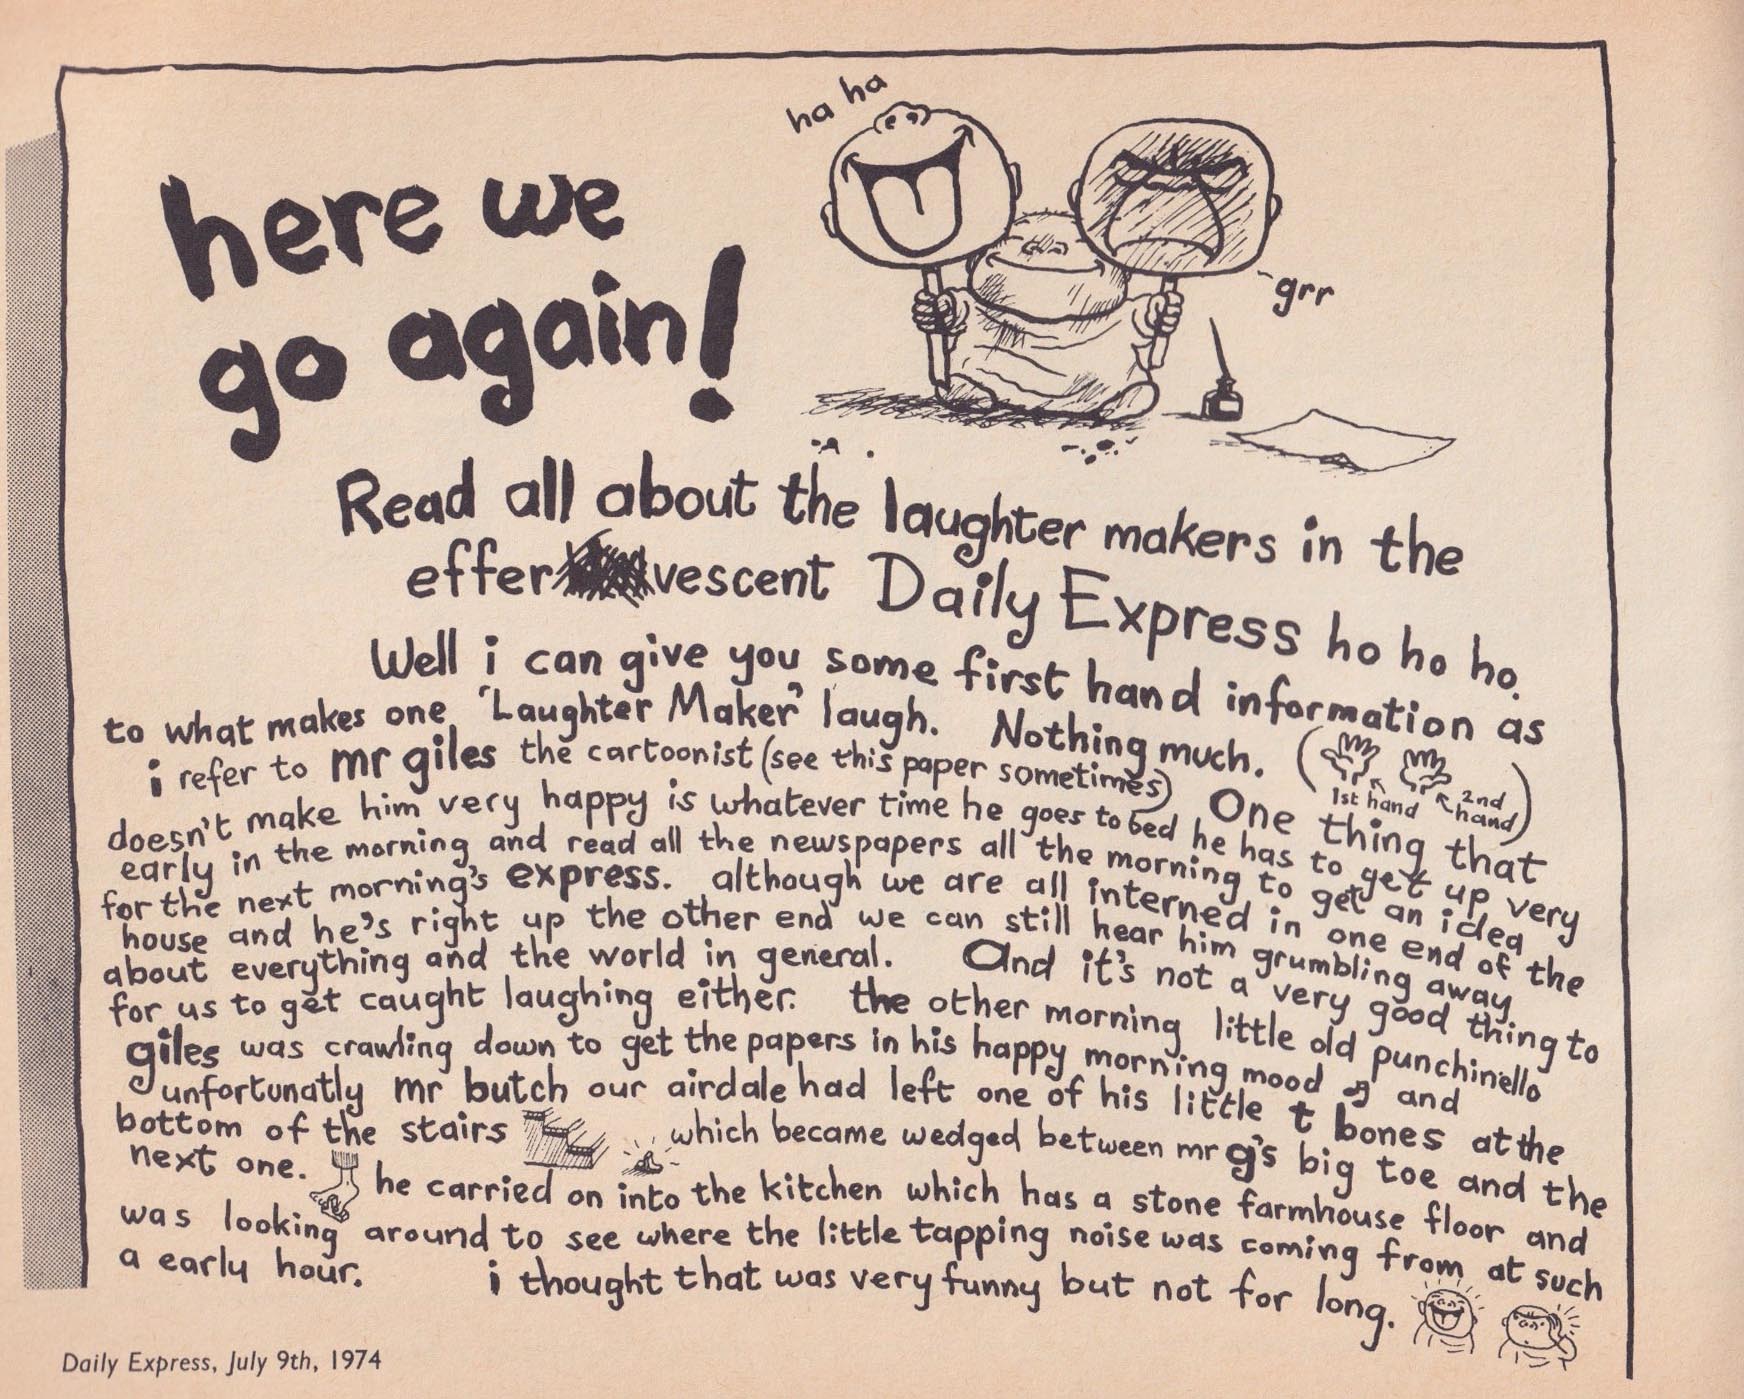 ha ha
here we
go again!
grr
Read all about the laughter makers in the
effervescent Daily Express ho ho ho.
Well i can give you some first hand information as
to what makes one 'Laughter Maker' laugh. Nothing much. (1st hand 2nd hand)
i refer to mr giles the cartoonist (see this paper sometimes) One thing that
doesn't make him very happy is whatever time he goes to bed he has to get up very
early in the morning and read all the newspapers all the morning to get an idea
for the next morning's express. although we are all interned in one end of the
house and he's right up the other end we can still hear him grumbling away
about everything and the world in general. And it's not a very good thing to
for us to get caught laughing either. the other morning little old punchinello
giles was crawling down to get the papers in his happy morning mood and
unfortunatly mr butch our airdale had left one of his little t bones at the
bottom of the stairs which became wedged between mr g's big toe and the
next one. he carried on into the kitchen which has a stone farmhouse floor and
was looking around to see where the little tapping noise was coming from at such
a early hour. i thought that was very funny but not for long.
Daily Express, July 9th, 1974